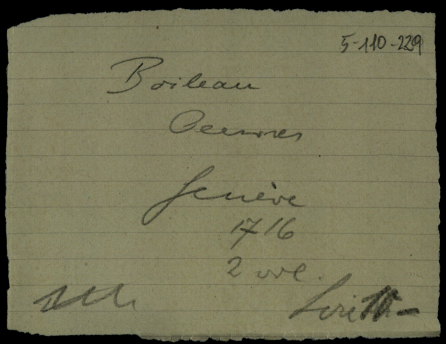 5-110-229
Boileau
Oeuvres
Genève
1716
2 vol.